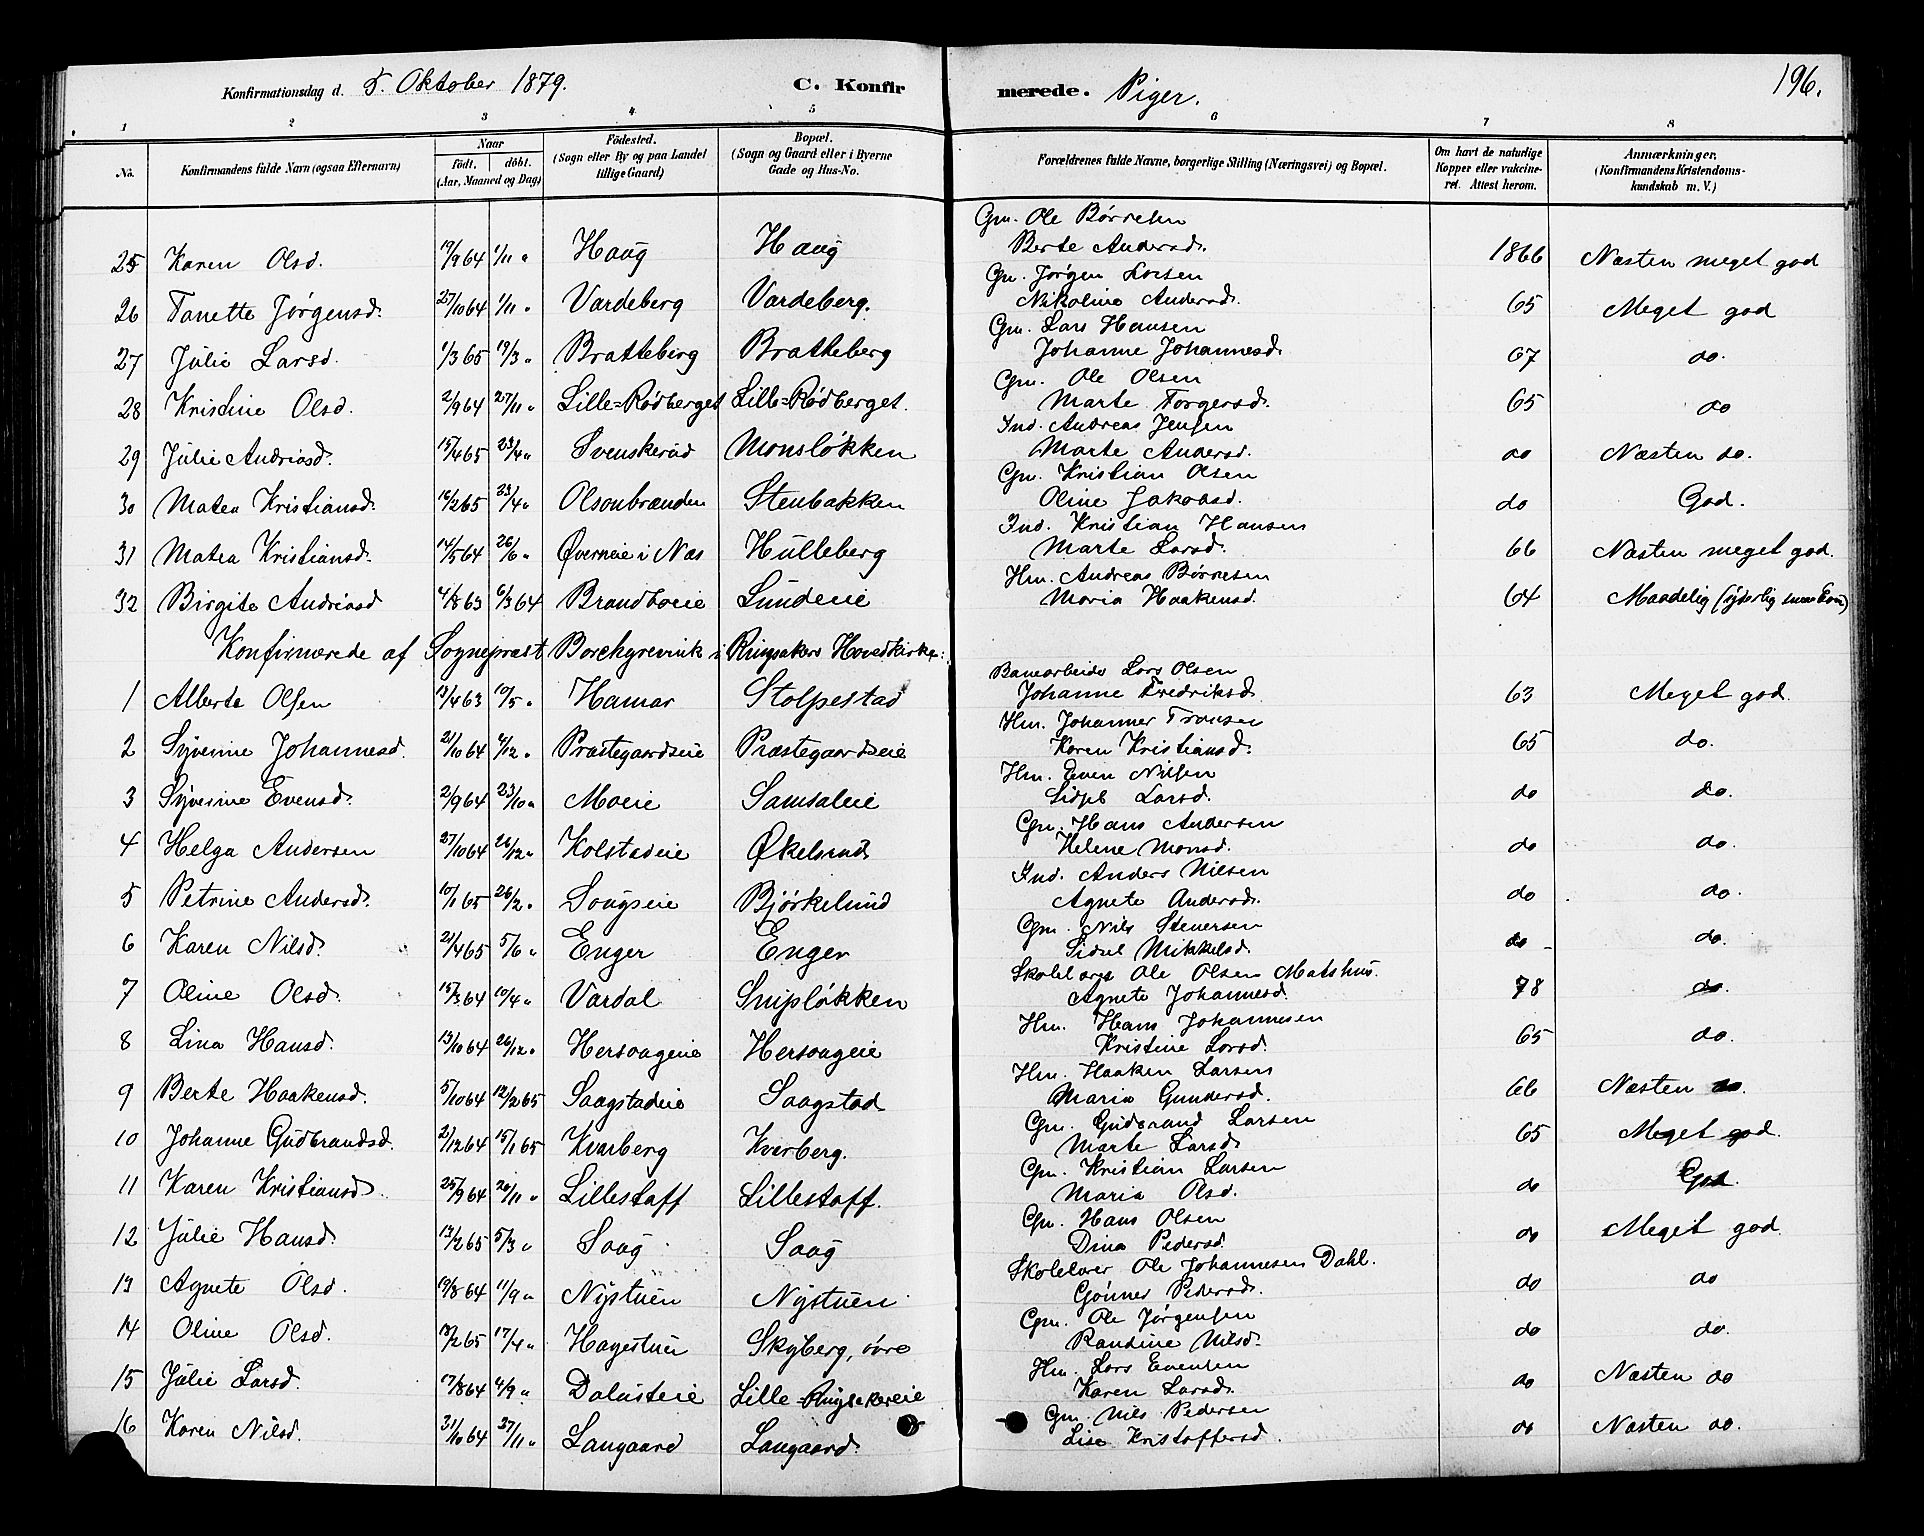 Konfirmationsdag d. 5. Oktober 1879. C. Konfirmerede. Piger. 196.
1 2 3 4 5 6 7 8
No. Konfirmandens fulde Navn (ogsaa Efternavn) Naar födt. döbt. (Aar, Maaned og Dag) Födested. (Sogn eller By og paa Landet tillige Gaard) Bopæl. (Sogn og Gaard eller i Byerne Gade og Hus-No. Forældrenes fulde Navne, borgerlige Stilling (Næringsvei) og Bopæl. Om havt de naturlige Kopper eller vakcineret. Attest herom. Anmærkninger. (Konfirmandens Kristendomskundskab m. V.)
25 Karen Olsd. 19/9 64 1/11 " Haug Haug Gm. Ole Börresen Berte Andersd. 1866 Næsten meget god
26 Tanette Jörgensd. 27/10 64 1/11 " Vardeberg Vardeberg. Gm. Jörgen Nikoline Andersd. 65 Meget god
27 Julie Larsd. 1/3 65 19/3 " Bratteberg Bratteberg Gm. Lars Hansen Johanne Johannesd. 67 do.
28 Kristine Olsd. 2/9 64 27/11 " Lille=Rödberget Lille=Rödberget. Gm. Ole Olsen Marte Torgersd. 65 do
29 Julie Andreasd. 15/4 65 23/4 " Svenskerud Monslökken Ind. Andreas Jensen Marte Andersd. do Næsten do.
30 Matea Kristiansd. 16/2 65 23/4 " Olsonbrænden Stenbakken Gm. Kristian Olsen Oline Jakobsd. do God.
31 Matea Kristiansd. 14/5 64 26/6 " Øverneie i Næs Hulleberg Ind. Kristian Hansen Marte Larsd. 66 Næsten meget god.
32 Birgite Andreasd 4/8 63 6/3 64 Brandboeie Lundeie Hm. Andreas Börresen Maria Haakensd. 64 Maadelig
Konfirmerede af Sognepræst Borchgrevink i Ringsakers Hovedkirke:
1 Alberte Olsen 13/4 63 10/5 " Hamar Stolpestad Banearbeider Lars Olsen Johanne Fredriksd. 63 Meget god.
2 Syverine Johannesd. 21/10 64 4/12 " Præstegaardseie Præstegaardseie Hm. Johannes Fransen Karen Kristiansd. 65 do.
3 Syverine Evensd. 2/9 64 23/10 " Moeie Samsaleie Hm. Even Nilsen Larsd. do do.
4 Helga Andersen 27/10 64 26/12 " Kolstadeie Økelsrud Gm. Hans Andersen Helene Monsd. do do.
5 Petrine Andersd. 10/1 65 26/2 " Saugseie Björkelund Ind. Anders Nilsen Agnete Andersd. do do.
6 Karen Nilsd. 21/4 65 5/6 " Enger Enger Gm. Nils Stenersen Sidsel Mikkelsd. do do.
7 Oline Olsd. 15/3 64 10/4 " Vardal Sniplökken Skolelærer Ole Olsen Matshus. Agnete Johannesd. 78 do.
8 Lina Hansd. 13/10 64 26/12 " Hersougeie Hersougeie Hm. Hans Johannesen Kristine Larsd. 65 do.
9 Berte Haakensd. 5/10 64 12/2 65 Saagstadeie Saagstad Hm. Haaken Larsen Maria Gundersd. 66 Næsten do.
10 Johanne Gudbrandsd. 2/12 64 15/1 65 Kvarberg Kverberg. Gm. Gudbrand Larsen Marte Larsd. 65 Meget god.
11 Karen Kristiansd. 25/9 64 20/11 " Lillestaff Lillestaff. Gm. Kristian Larsen Maria Olsd. do God.
12 Julie Hansd. 13/2 65 5/3 " Saag Saag Gm. Hans Olsen Dina Pedersd. do Meget god.
13 Agnete Olsd. 19/8 64 11/9 " Nystuen Nystuen Skolelærer Ole Johannesen Dahl. Gönner Pedersd. do do
14 Oline Olsd. 13/2 65 17/4 " Hagestuen Skyberg, övre Gm. Ole Jörgensen Randine Nilsd. do do.
15 Julie Larsd. 17/8 64 4/9 " Dalusteie Lille-Ringsakereie Hm. Lars Evensen Karen Larsd. do Næsten do
16 Karen Nilsd. 31/10 64 27/11 " Langaard Langaard. Gm. Nils Pedersen Lise Kristoffersd. do Næsten do.